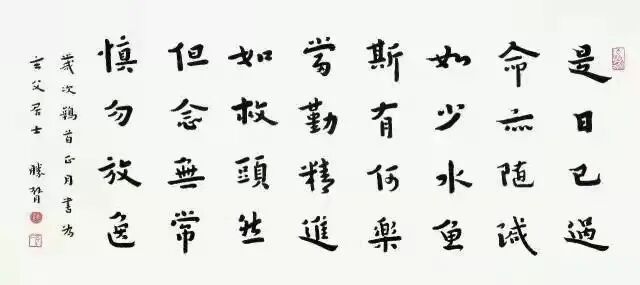 是日已過
命亦隨減
如少水魚
斯有何樂
當勤精進
如救頭然
但念無常
慎勿放逸
歲次首正月書為
玄父居士 勝